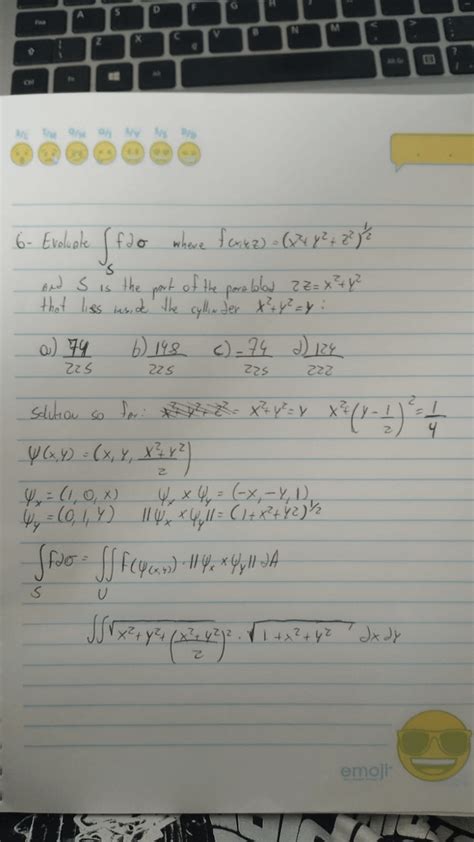 A S D F G H J K
Z X C V B
Alt
6- Evaluate ∫_S f dσ where f(x,y,z) = (x²+y²+z²)^½
and S is the part of the paraboloid 2z=x²+y²
that lies inside the cylinder x²+y²=y:
a) 74/225 b) 148/225 c) -74/225 d) 124/222
Solution so far: x²+y²=y x²+(y-1/2)²=1/4
Ψ(x,y) = (x, y, (x²+y²)/2)
Ψx = (1, 0, x) Ψx × Ψy = (-x, -y, 1)
Ψy = (0, 1, y) ||Ψx × Ψy|| = (1+x²+y2)^½
∫_S f dσ = ∬_U f(Ψ(x,y)) · ||Ψx × Ψy|| dA
∬ √(x²+y²+((x²+y²)/2)²) · √(1+x²+y²) dx dy
emoji